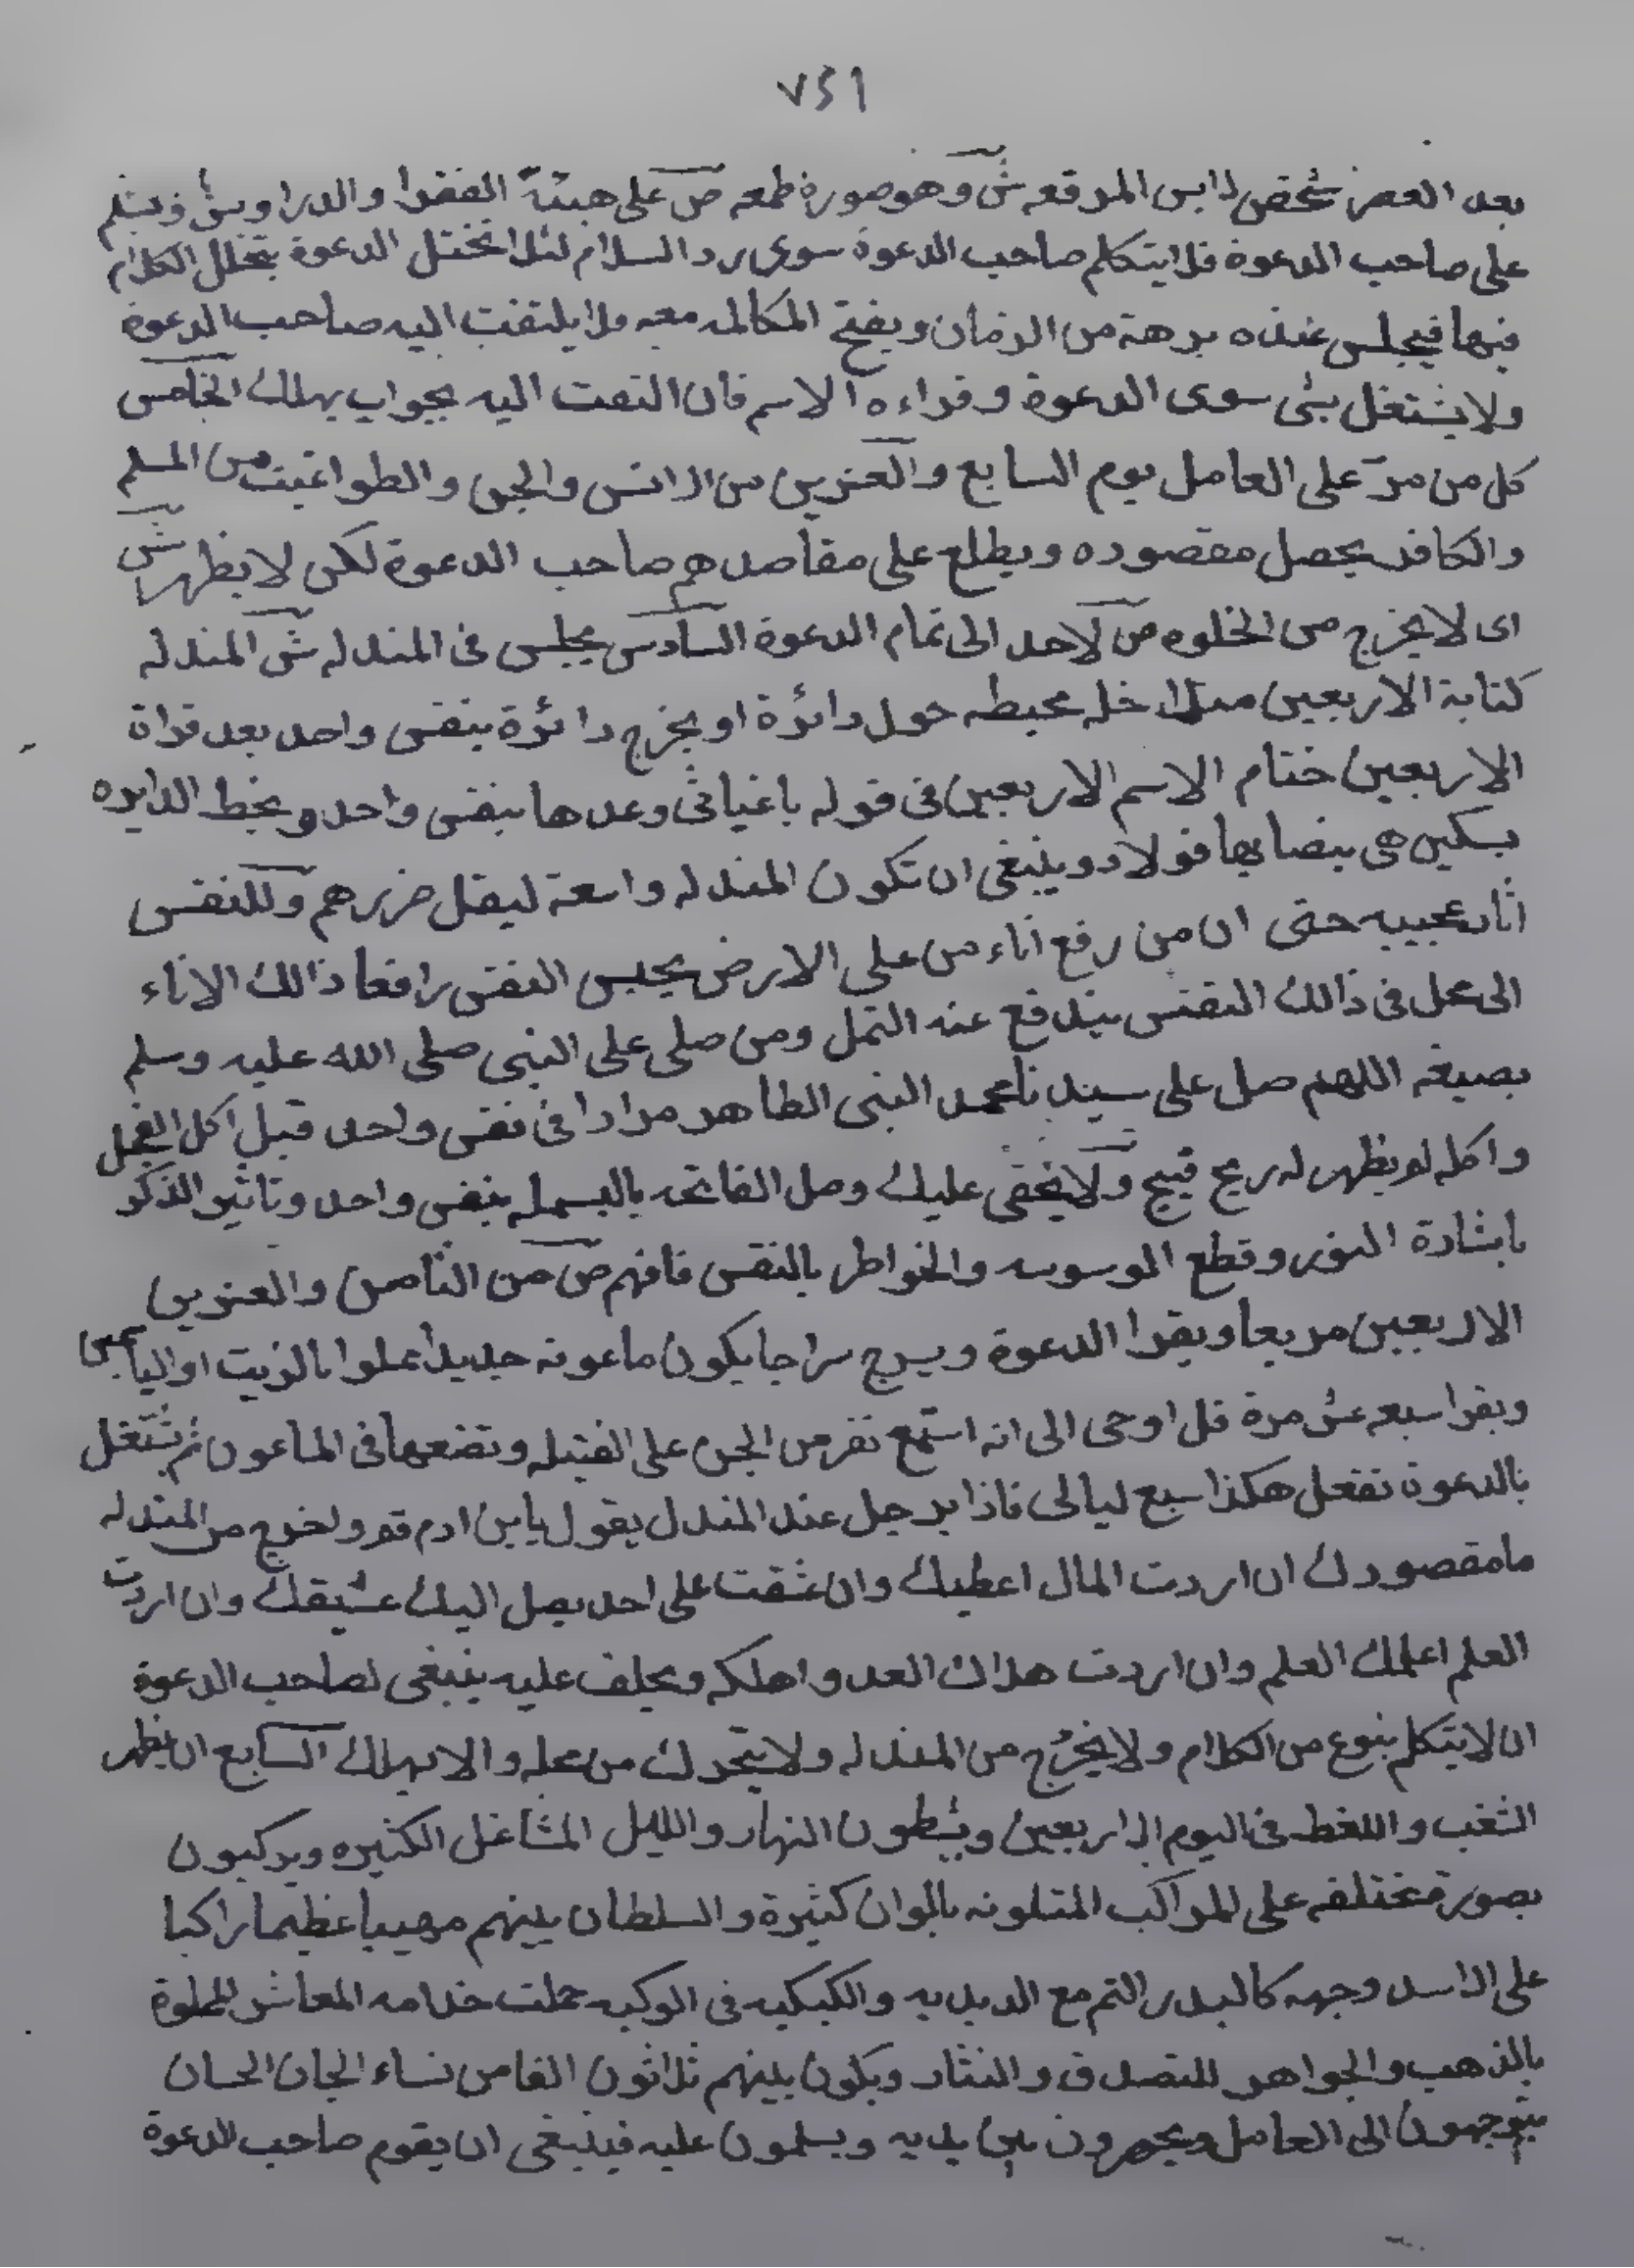 ٧٤١
بعد العصر شخص لابس المرقعه ش وهو صورة قطعه ص على هيئة الفقرا والدراويش ويسلم
على صاحب الدعوة فلا يتكلم صاحب الدعوة سوى رد السلام لئلا تختل الدعوة بتخلل الكلام
فيها فيجلس عنده برهة من الزمان ويفتح المكالمه معه ولا يلتفت اليه صاحب الدعوة
ولا يشتغل بشى سوى الدعوة وقراءه الاسم فان التفت اليه بجواب يهلك الخامس
كل من مر على العامل يوم السابع والعشرين من الانس والجن والطواغيت من المسلم
والكافر يحصل مقصوده ويطلع على مقاصدهم صاحب الدعوة لكن لا يظهر ش
اى لا يخرج من الخلوه ص لاحد الى تمام الدعوة السادس يجلس فى المندله ش المندله
كتابة الاربعين محيطه حول دائرة او يخرج دائرة بنفس واحد بعد قراة
الاربعين ختام الاسم الاربعين فى قوله ياغياثى وعدها بنفس واحد ويخط الدايره
بسكين هى بنصابها فولاد وينبغى ان تكون المندله واسعة ليقل ضررهم وللنفس
اثار عجيبه حتى ان من رفع اناء من على الارض يحبس النفس رافعا ذالك الاناء
الى محل فى ذالك النفس يندفع عنه النمل ومن صلى على النبى صلى الله عليه وسلم
بصيغه اللهم صل على سيدنا محمد النبى الطاهر مرارا فى نفس واحد قبل اكل الفجل
واكله لم يظهر له ريح قبيح ولا يخفى عليك وصل الفاتحه بالبسمله بنفس واحد وتاثير الذكر
باشارة النور وقطع الوسوسه والخواطر بالنفس فافهم ص من الثامن والعشرين
الاربعين مربعا ويقرا الدعوة ويسرج سراجا يكون ماعونه جديدا مملوا بالزيت او الياسمين
ويقرا سبعه عشر مرة قل اوحى الى انه استمع نفر من الجن على الفتيله وتضعها فى الماعون ثم تشتغل
بالدعوة تفعل هكذا سبع ليالى فاذا برجل عند المندل يقول يا بن ادم قم ولخرج من المندله
ما مقصودك ان اردت المال اعطيك وان عشقت على احد يصل اليك عشيقك وان اردت
العلم اعلمك العلم وان اردت هلاك العدو اهلكه ويحلف عليه ينبغى لصاحب الدعوة
ان لا يتكلم بنوع من الكلام ولا يخرج من المندله ولا يتحرك من محله والا يهلك السابع ان يظهر
الشغب واللغط فى اليوم الاربعين وينشطون النهار والليل المشاغل الكثيره ويركبون
بصورة مختلفه على المراكب المتلونه بالوان كثيرة والسلطان بينهم مهيبا عظيما راكبا
على الاسد وجهه كالبدر التم مع الدبدبه والكبكبه فى الوكبه حملت خدامه المعاشر المملوة
بالذهب والجواهر للتصدق والنثار ويكون بينهم ثلاثون الفا من نساء الجان الحسان
يتوجهون الى العامل ويحضرون بين يديه ويسلمون عليه فينبغى ان يقوم صاحب الدعوة